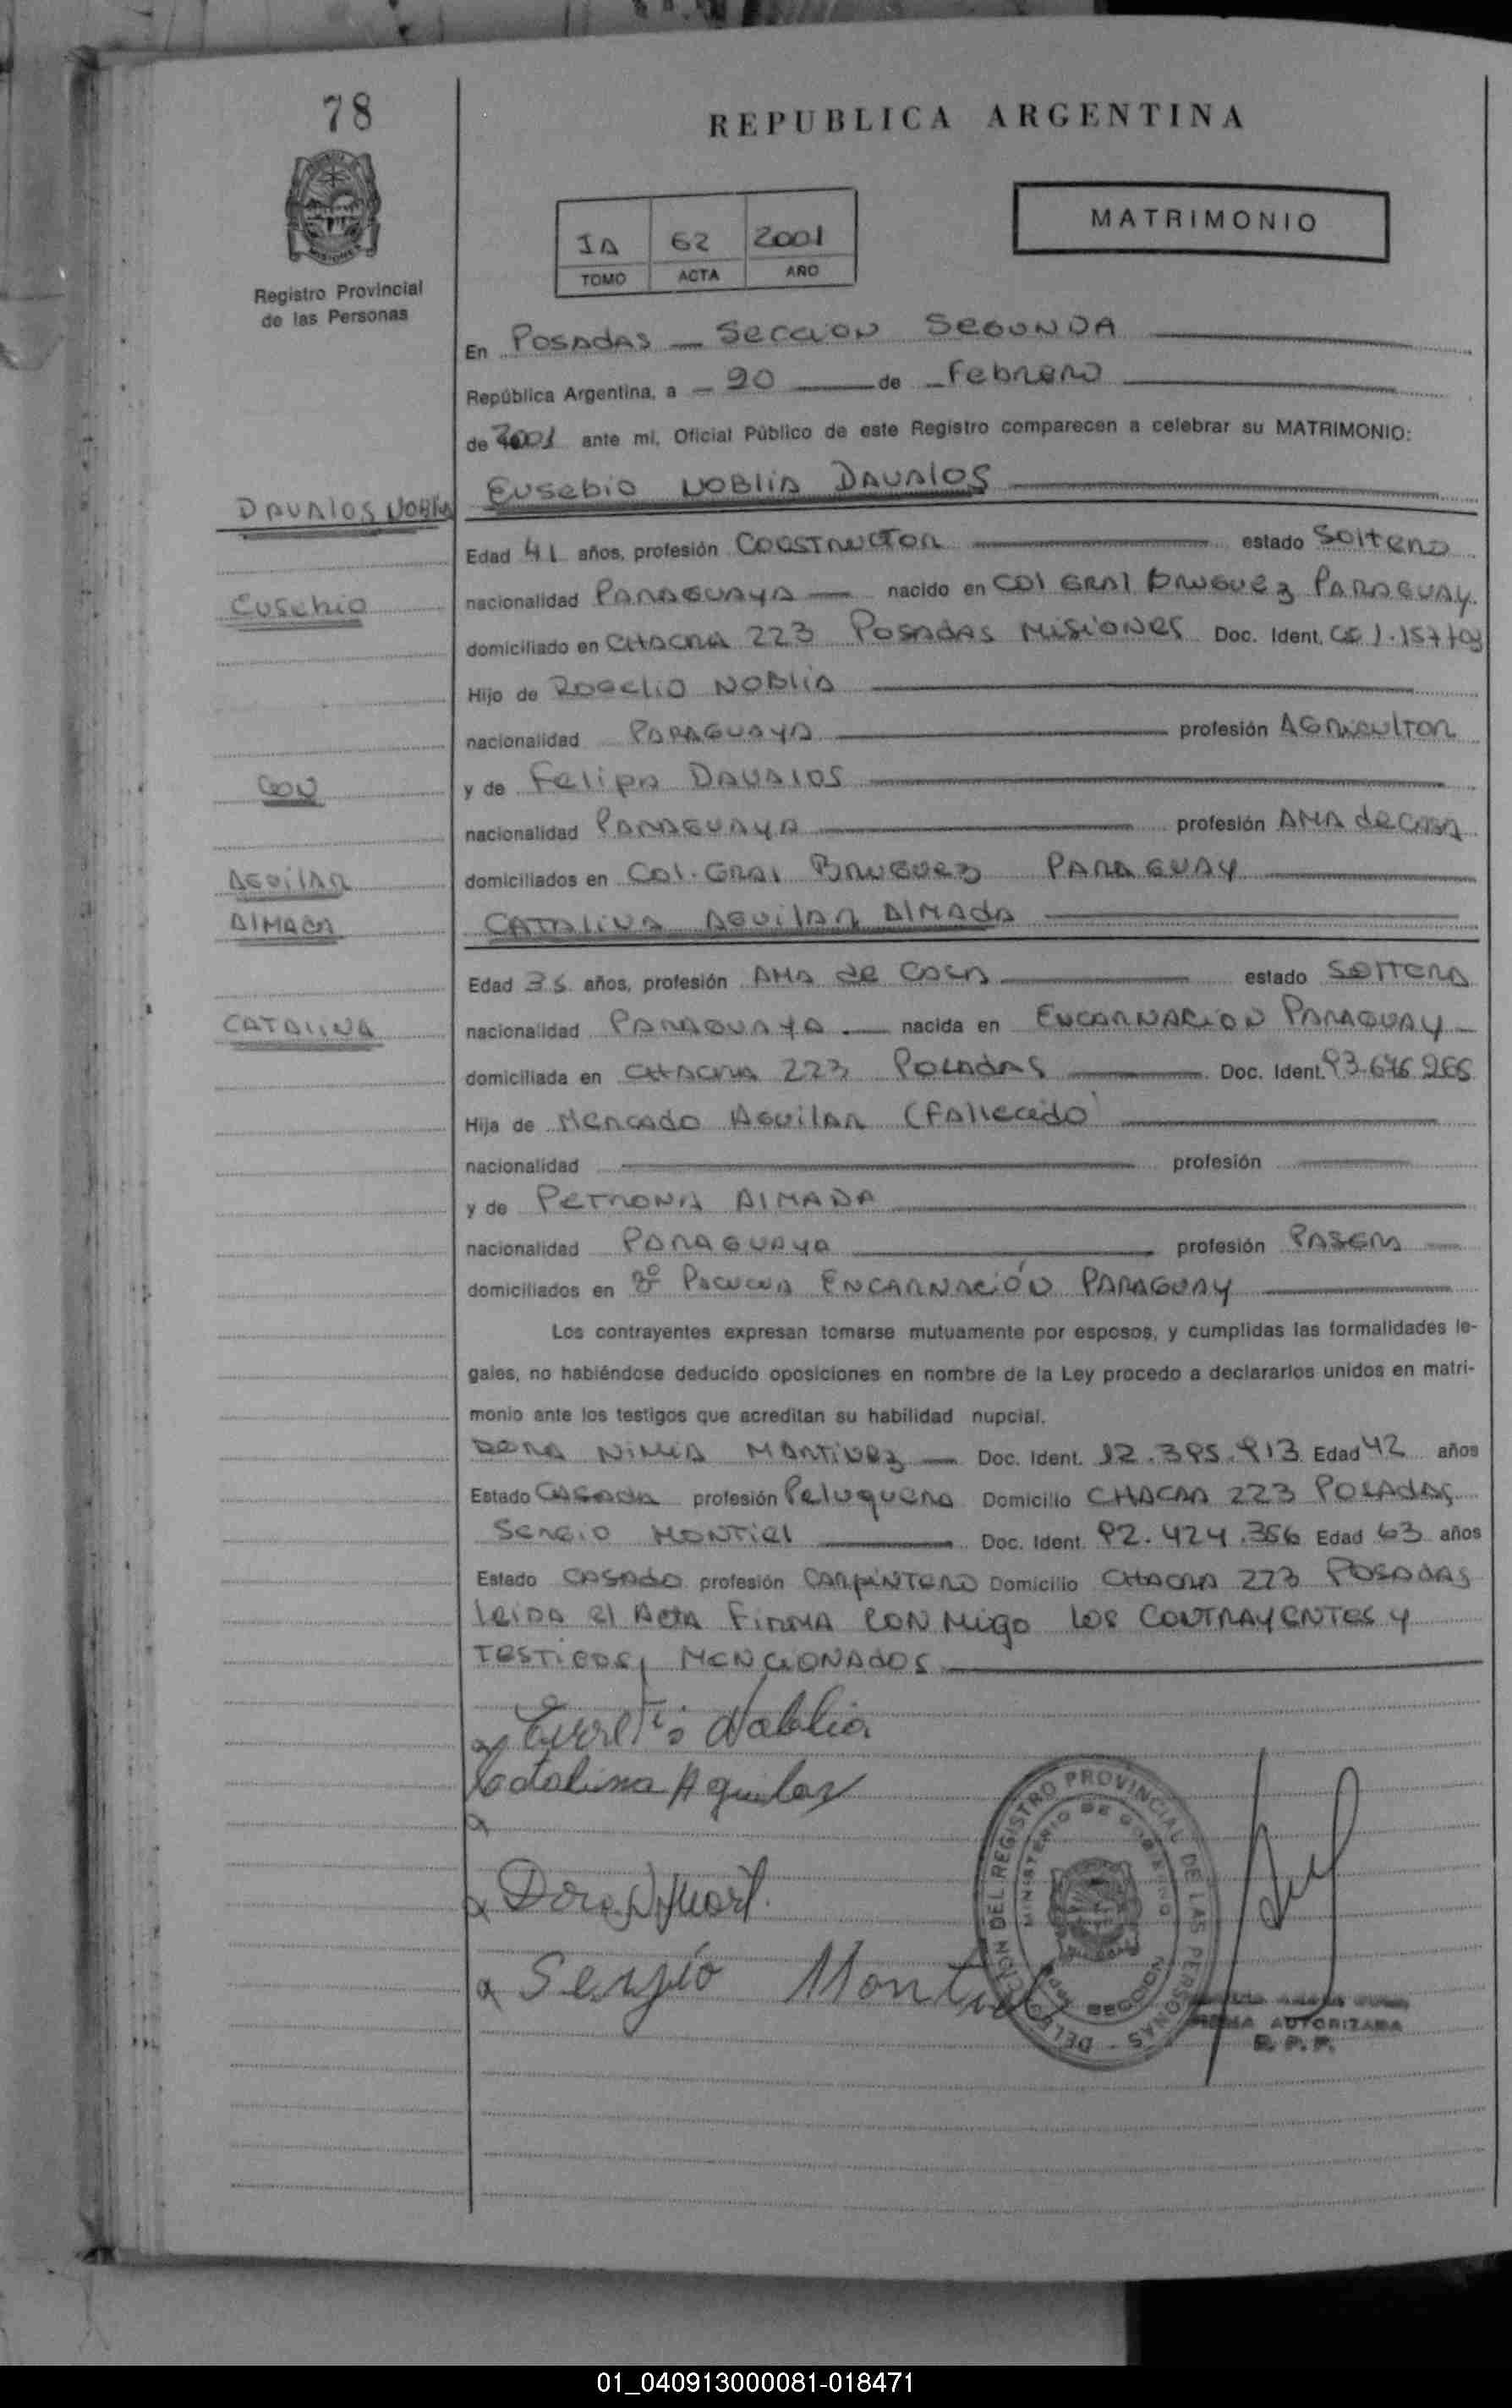 78
REPUBLICA ARGENTINA
MATRIMONIO
62 2001
TOMO ACTA AÑO
Registro Provincial
de las Personas
En Posadas — Seccion Segunda
República Argentina, a — 20 — de — Febrero
de 2001 ante mí, Oficial Público de este Registro comparecen a celebrar su MATRIMONIO:
Eusebio NOBLIA DAVALOS
DAVALOS NOBLIA
Edad 41 años, profesión Constructor estado Soltero
Eusebio
nacionalidad PARAGUAYA — nacido en COL GRAL BRUGUEZ PARAGUAY
domiciliado en CHACRA 223 POSADAS MISIONES Doc. Ident.
Hijo de ROGELIO NOBLIA
nacionalidad PARAGUAYA profesión AGRICULTOR
CON
y de Felipa DAVALOS
nacionalidad PARAGUAYA profesión AMA de CASA
AGUILAR
domiciliados en COL. GRAL BRUGUEZ PARAGUAY
ALMADA
CATALINA AGUILAR ALMADA
Edad 35 años, profesión AMA de CASA estado SOLTERA
CATALINA
nacionalidad PARAGUAYA — nacida en ENCARNACION PARAGUAY —
domiciliada en CHACRA 223 POSADAS Doc. Ident. 93.676.265
Hija de Mercado AGUILAR (Fallecido
nacionalidad profesión
y de PETRONA ALMADA
nacionalidad PARAGUAYA profesión PASERA
domiciliados en Bº PACUCUA ENCARNACIÓN PARAGUAY
Los contrayentes expresan tomarse mutuamente por esposos, y cumplidas las formalidades le-
gales, no habiéndose deducido oposiciones en nombre de la Ley procedo a declararlos unidos en matri-
monio ante los testigos que acreditan su habilidad nupcial.
DORA NIMIA MARTINEZ — Doc. Ident. 12.395.913 Edad 42 años
Estado CASADA profesión Peluquera Domicilio CHACRA 223 POSADAS
Sergio MONTIEL Doc. Ident. 92.424.356 Edad 63 años
Estado CASADO profesión CARPINTERO Domicilio CHACRA 223 POSADAS
leida el ACTA FIRMA CONMIGO LOS CONTRAYENTES Y
TESTIGOS, MENCIONADOS
Noblia
Catalina Aguilar
Dora N Mart.
Sergio Montiel
DELEGACION DEL REGISTRO PROVINCIAL DE LAS PERSONAS
MINISTERIO DE GOBIERNO
FIRMA AUTORIZADA
R. P. P.
01_040913000081-018471